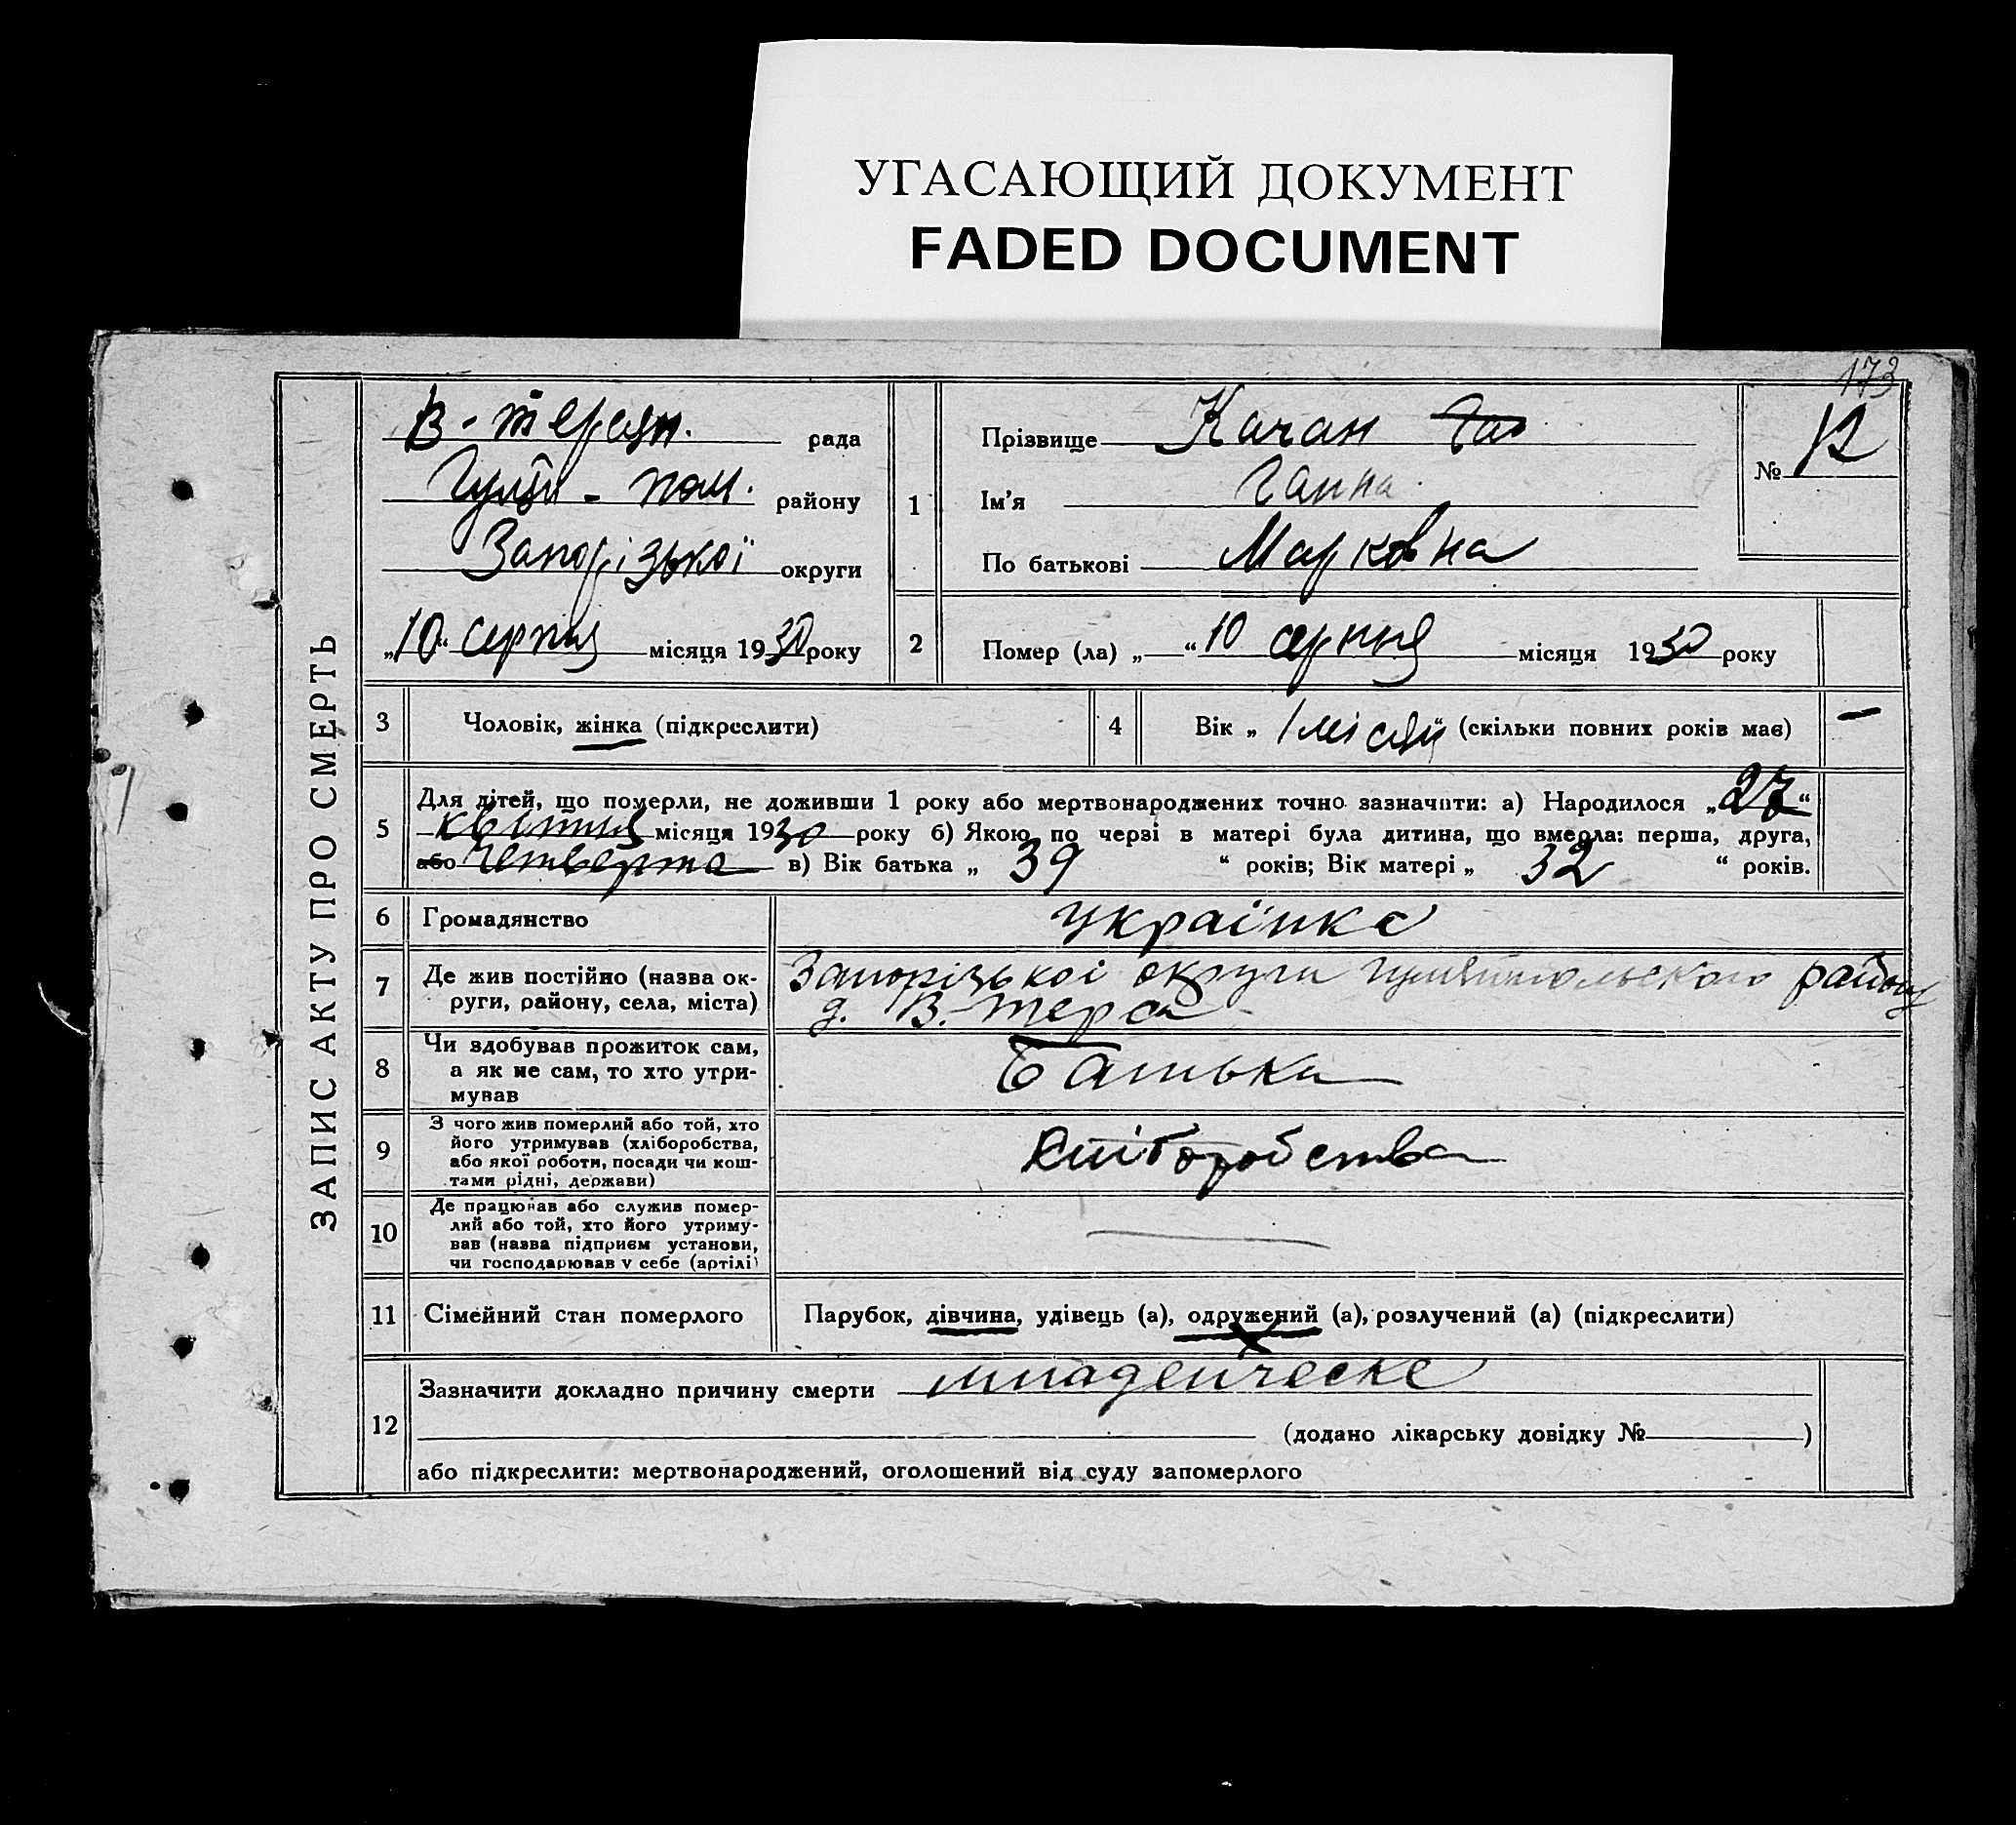 УГАСАЮЩИЙ ДОКУМЕНТ
FADED DOCUMENT
173
ЗАПИС АКТУ ПРО СМЕРТЬ
В-терсян. рада
Гуляй-пол. району
Запорізької округи
„10“ серпня місяця 1930 року
1
Прізвище Качан Га
Ім’я Ганна
По батькові Марковна
№ 12
2 Помер (ла) „ “ 10 серпня місяця 1930 року
3 Чоловік, жінка (підкреслити)
4 Вік „ 1 місяць “ (скільки повних років має) —
5 Для дітей, що померли, не доживши 1 року або мертвонароджених точно зазначити: а) Народилося „27“
квітня місяця 1930 року б) Якою по черзі в матері була дитина, що вмерла: перша, друга,
або четверта в) Вік батька „ 39 “ років; Вік матері „ 32 “ років.
6 Громадянство українка
7 Де жив постійно (назва ок-
руги, району, села, міста)
Запорізької округи Гуляйпольского району
д. В.-терса
8 Чи здобував прожиток сам,
а як не сам, то хто утри-
мував
батько
9 З чого жив померлий або той, хто
його утримував (хліборобства,
або якої роботи, посади чи кош-
тами рідні, держави)
хліборобства
10 Де працював або служив помер-
лий або той, хто його утриму-
вав (назва підприєм установи,
чи господарював у себе (артілі)
—
11 Сімейний стан померлого Парубок, дівчина, удівець (а), одружений (а), розлучений (а) (підкреслити)
12 Зазначити докладно причину смерти младенческе
(додано лікарську довідку № )
або підкреслити: мертвонароджений, оголошений від суду запомерлого